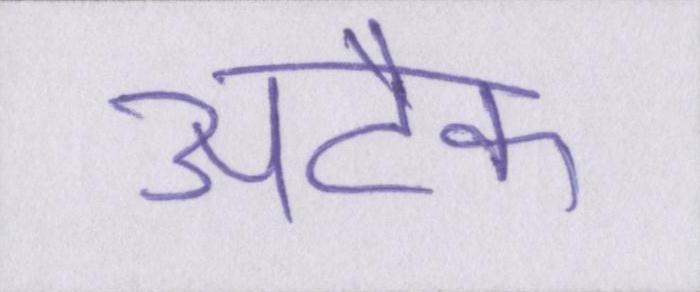 अटैक